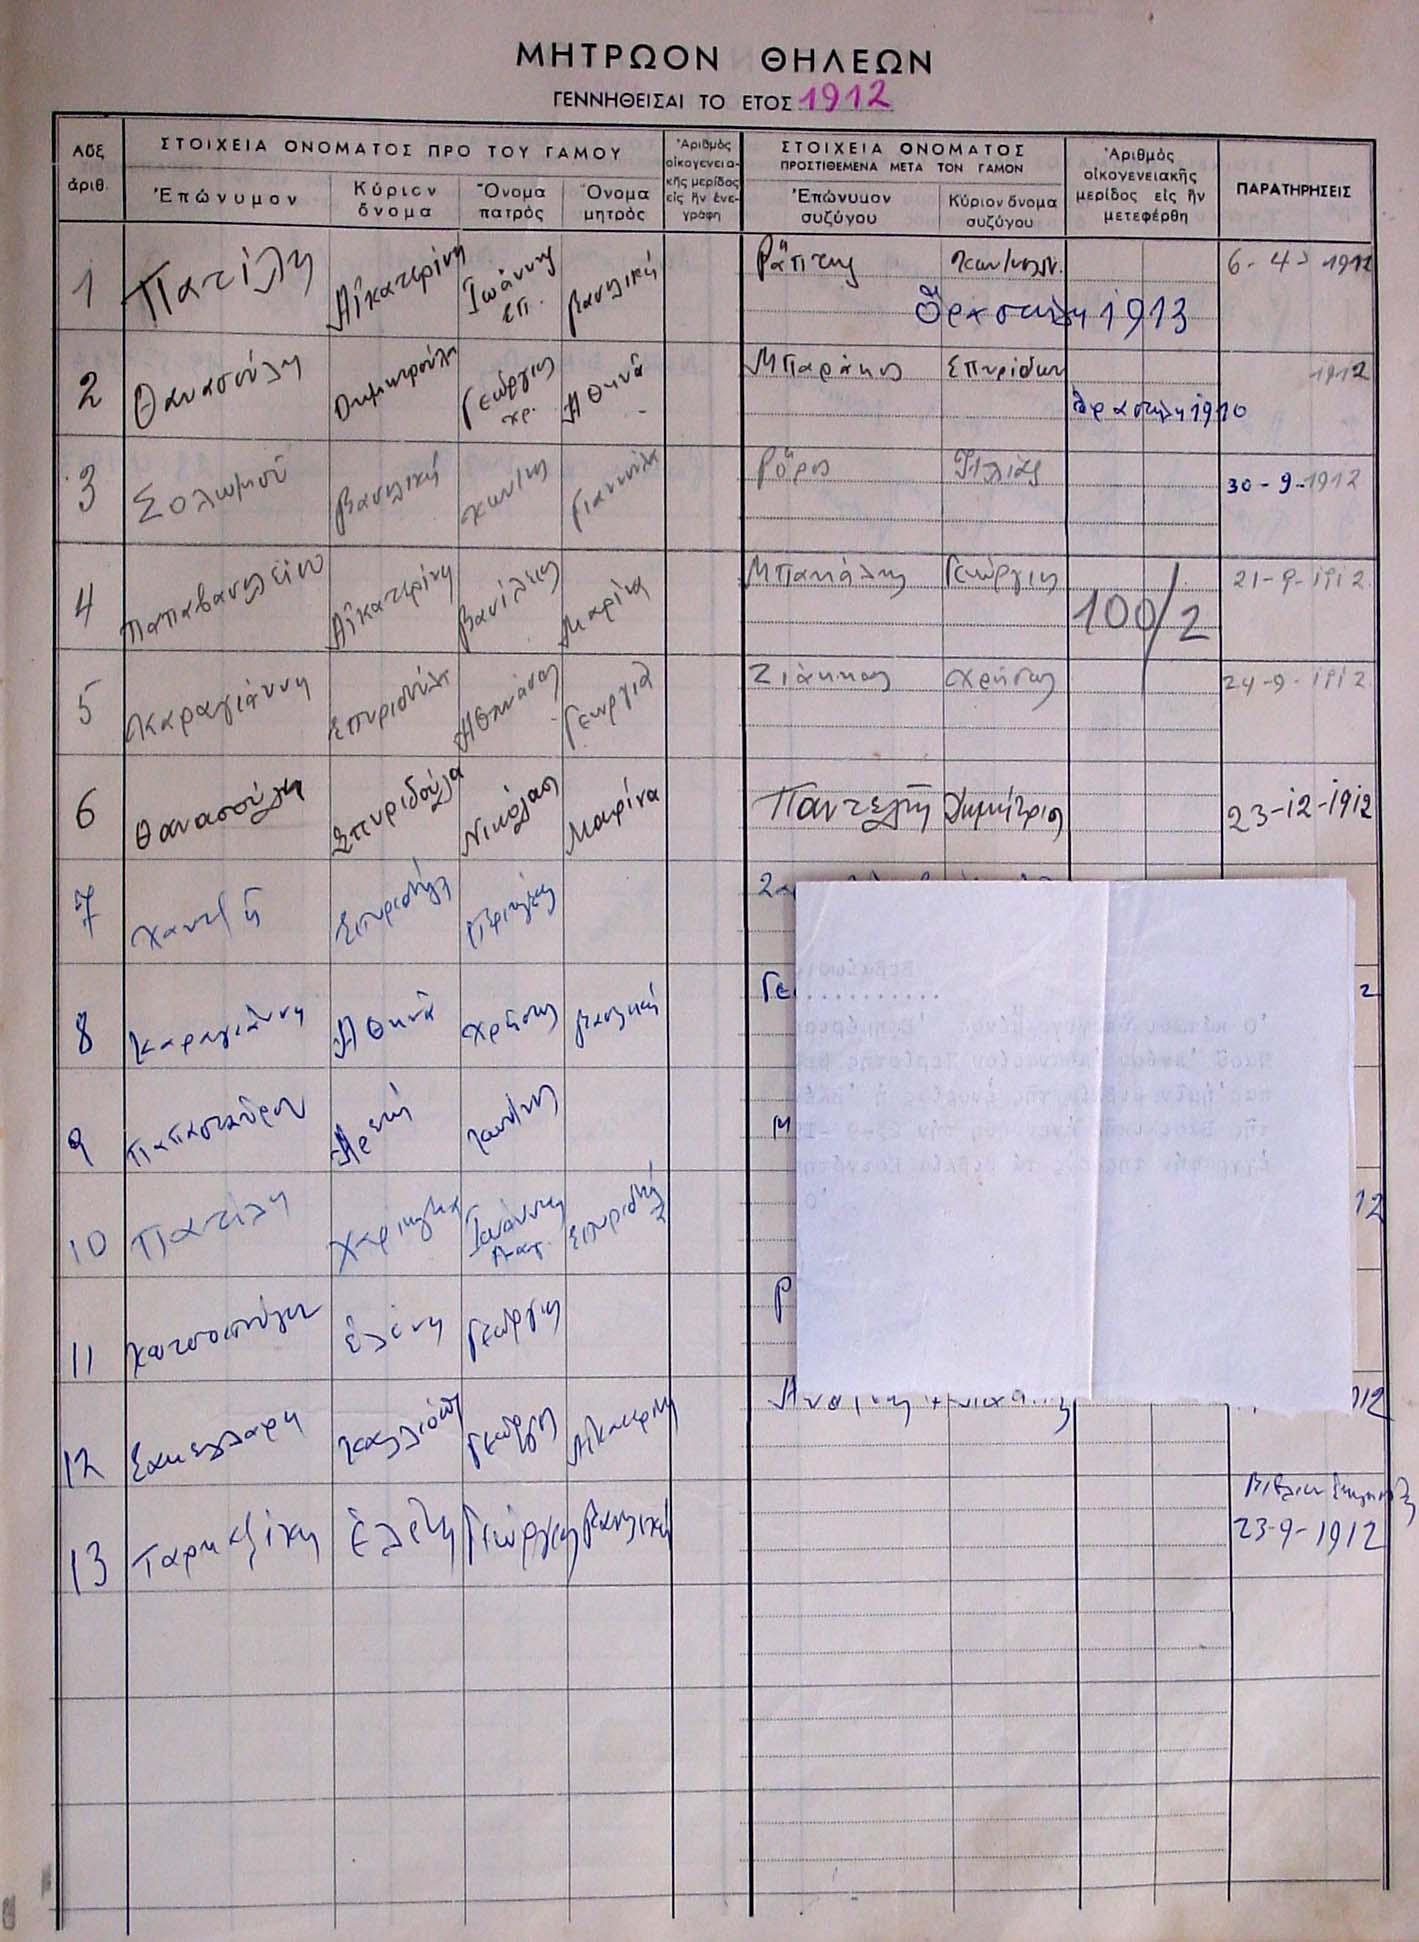 ΜΗΤΡΩΟΝ ΘΗΛΕΩΝ
ΓΕΝΝΗΘΕΙΣΑΙ ΤΟ ΕΤΟΣ 1912
Αὔξ ἀριθ.
ΣΤΟΙΧΕΙΑ ΟΝΟΜΑΤΟΣ ΠΡΟ ΤΟΥ ΓΑΜΟΥ
Ἐπώνυμον
Κύριον ὄνομα
Ὄνομα πατρὸς
Ὄνομα μητρὸς
Ἀριθμὸς οἰκογενεια- κῆς μερίδος εἰς ἣν ἐνε- γράφη
ΣΤΟΙΧΕΙΑ ΟΝΟΜΑΤΟΣ ΠΡΟΣΤΙΘΕΜΕΝΑ ΜΕΤΑ ΤΟΝ ΓΑΜΟΝ
Ἐπώνυμον συζύγου
Κύριον ὄνομα συζύγου
Ἀριθμὸς οἰκογενειακῆς μερίδος εἰς ἣν μετεφέρθη
ΠΑΡΑΤΗΡΗΣΕΙΣ
1 Πατίλη Αἰκατερίνη Ἰωάννης Βασιλική Ράπτης 6-4-1912
Σπ. 1913
2 Θανασούλη Δημητρούλα Γεώργιος Ἀθηνᾶ Μπαράκος Σπυρίδων 1912
Χρ. 1910
3 Σολωμοῦ Βασιλική Κων/νος Γιαννούλα Ρόρος Ἠλίας 30-9-1912
4 Παπαβασιλείου Αἰκατερίνη Βασίλειος Μαρίνα Μπακάλης Γεώργιος 100/2 21-9-1912
5 Καραγιάννη Σπυριδούλα Ἀθανάσιος Γεωργία Ζιάκκας Χρῆστος 24-9-1912
6 Θανασούλη Σπυριδούλα Νικόλαος Μαρίνα Παντελῆς Δημήτριος 23-12-1912
7 Χαντζῆ Σπυριδούλα Περικλῆς
8 Καραγιάννη Ἀθηνᾶ Χρῆστος Βασιλική Γε 2
9 Παπασταύρου Ἀρετή Κων/νος
10 Πατίλη Χαρίκλεια Ἰωάννης Σπυριδούλα 12
11 Ἑλένη Γεώργιος Ρ
12 Σακελλάρη Καλλιόπη Γεώργιος Αἰκατερίνη 12
13 Ἑλένη Γεώργιος Βασιλική
23-9-1912